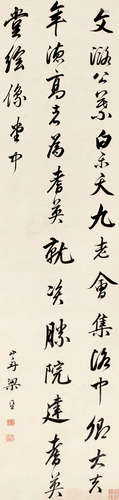 文潞公慕白樂天九老會集洛中卿大夫
年德高者為耆英就資勝院建耆英
堂繪像堂中
山舟梁